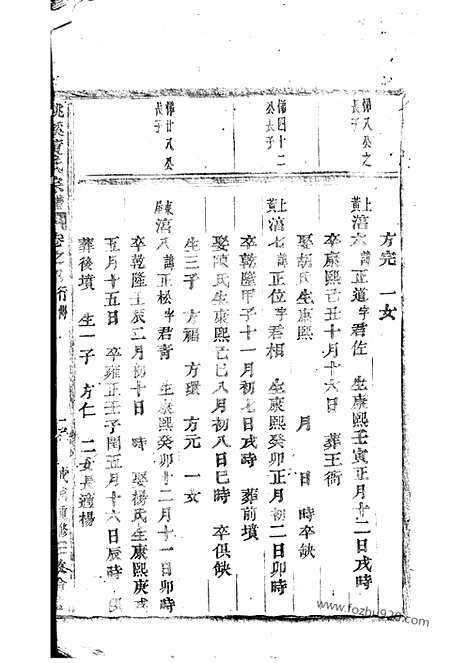 方完 一女
備八公之長子
上黃 滔六 諱正道字君佐 生康熙壬寅正月十二日戌時
卒康熙己丑十月十六日 葬王衕
娶胡氏生康熙 月 日 時卒缺
備四十二公長子
上黃 滔七 諱正位字君相 生康熙癸卯正月初二日卯時
卒乾隆甲子十一月初七日戌時 葬前墳
娶陳氏生康熙己巳八月初八日巳時 卒俱缺
生三子 方福 方環 方元 一女
備廿八公長子
東屋 滔八 諱正松字君青 生康熙癸卯十二月十一日卯時
卒乾隆壬辰二月初十日 時 娶楊氏生康熙庚戌
五月十五日 卒雍正壬子閏五月十六日辰時 俱
葬後墳 生一子 方仁 二女長適楊
氏宗譜 卷之 行傳
重修
https://www.fozhu920.com/